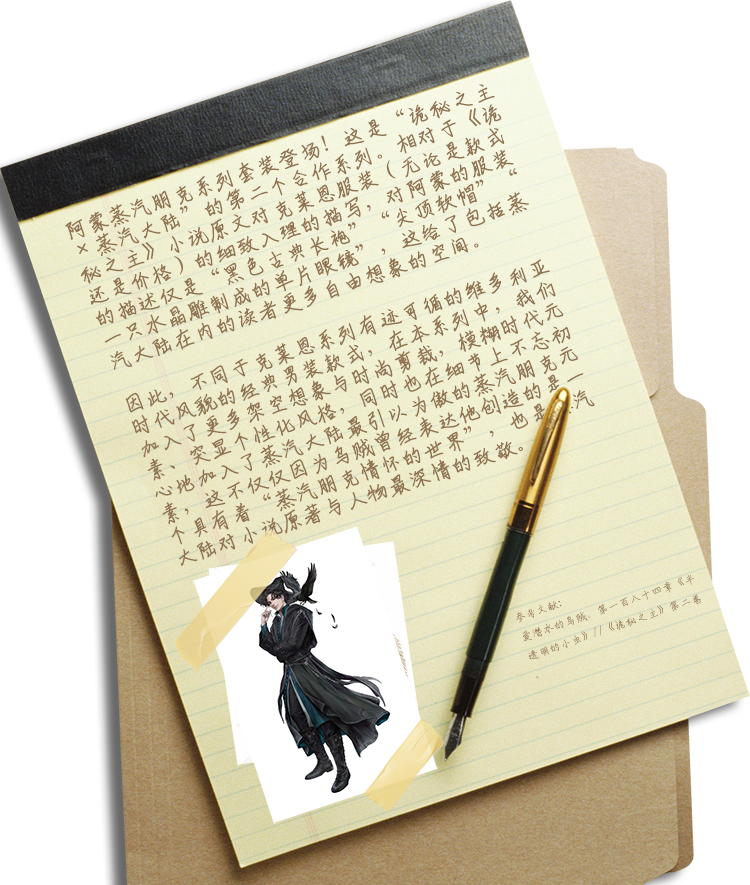 阿蒙蒸汽朋克系列套装登场！这是“诡秘之主
×蒸汽大陆”的第二个合作系列。相对于《诡
秘之主》小说原文对克莱恩服装（无论是款式
还是价格）的细致入理的描写，对阿蒙的服装
的描述仅是“黑色古典长袍”“尖顶软帽”“
一只水晶雕制成的单片眼镜”，这给了包括蒸
汽大陆在内的读者更多自由想象的空间。
因此，不同于克莱恩系列有迹可循的维多利亚
时代风貌的经典男装款式，在本系列中，我们
加入了更多架空想象与时尚剪裁，模糊时代元
素、突显个性化风格，同时也在细节上不忘初
心地加入了蒸汽大陆最引以为傲的蒸汽朋克元
素，这不仅仅因为乌贼曾经表达他创造的是一
个具有着“蒸汽朋克情怀的世界”，也是汽
大陆对小说原著与人物最深情的致敬。
参考文献：
爱潜水的乌贼．第一百八十四章《半
透明的小虫》//《诡秘之主》第二卷